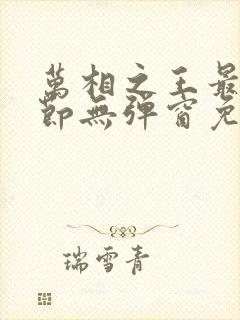 萬相之王最
節無彈窗免
瑞雪青